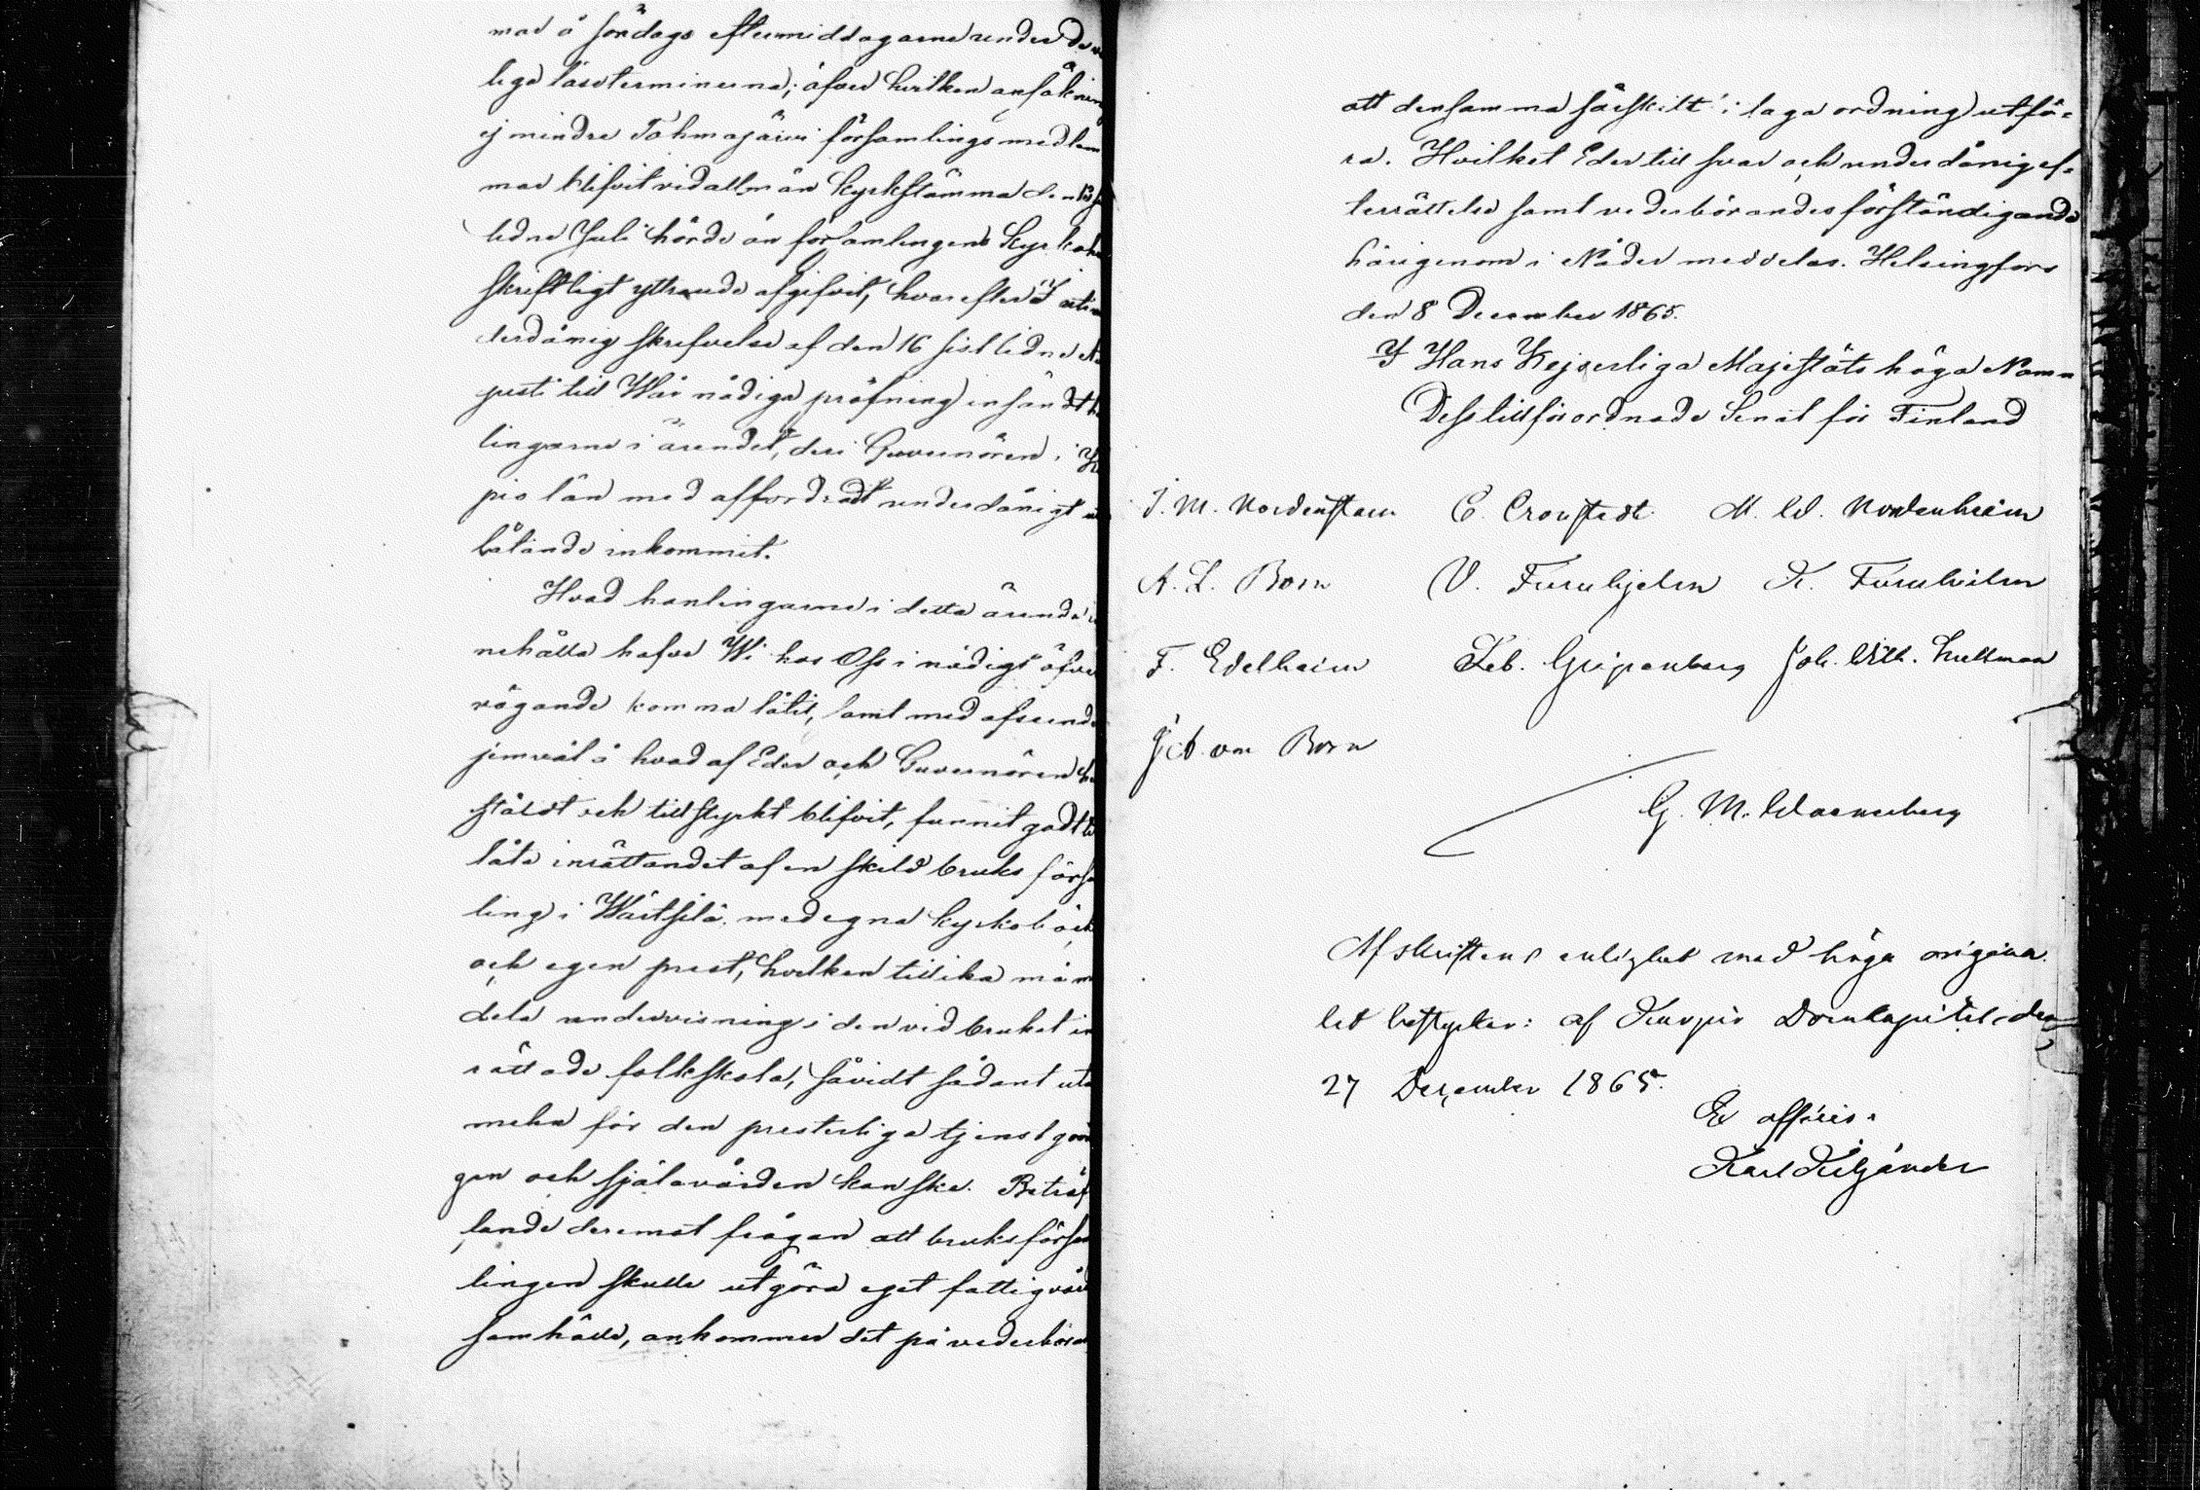 mar å söndags eftermiddagarne under de
liga läseterminerna; öfver hvilken ansöknin
ej mindre Tohmajärvi församlings medlem
mar blifvit vid allmän kyrkstämma den
lidne Juli hörde än församlingens Kyrkohe
skriftligt yttrande afgifvit, hvarefter I uti
derdånig skrifvelse af den 16 sistlidne
gusti till Wår nådiga pröfning insändt
lingarne i ärendet, deri Guvernören i
pio län med affordradt underdånigt
låtande inkommit.
Hvad hanlingarne i detta ärende
nehålla hafve Wi hos Oss i nådigt öfver
vägande komma låtit, samt med afseende
jemväl å hvad af Eder och Guvernören
stäldt och tillstyrkt blifvit, funnit godt
låta inrättandet af en skild bruks förs
ling i Wärtsilä med egna kyrkoböck
och egen prest, hvilken tillika må m
dela undervisning i den vid bruket in
rättade folkskola, såvidt sådant uta
mehn för den presterliga tjenstgör
gen och själavården kan ske. Beträf
fande deremot frågan att bruksförsam
lingen skulle utgöra eget fattigvård
samhälle, ankommer det på vederböra
att densamma särskilt i laga ordning utfö-
ra. Hvilket Eder till svar och underdånig ef-
terrättelse samt vederbörandes förständigande
härigenom i Nåder meddelas. Helsingfors
den 8 December 1865.
I Hans Kejserliga Majestäts höga Namn
Dess tillförordnade Senat för Finland
J. M. Nordenstam C. Cronstedt M. W. Nordenheim
A. L. Born V. Furuhjelm K. Furuhjelm
F. Edelheim Seb. Gripenberg Joh. Vilh. Snellman
von Born
G. M. Waenerberg
Afskriftens enlighet med höga origina
let bestyrker: af Kuopio Domkapitel den
27 December 1865.
Ex officio
Karl Kiljander